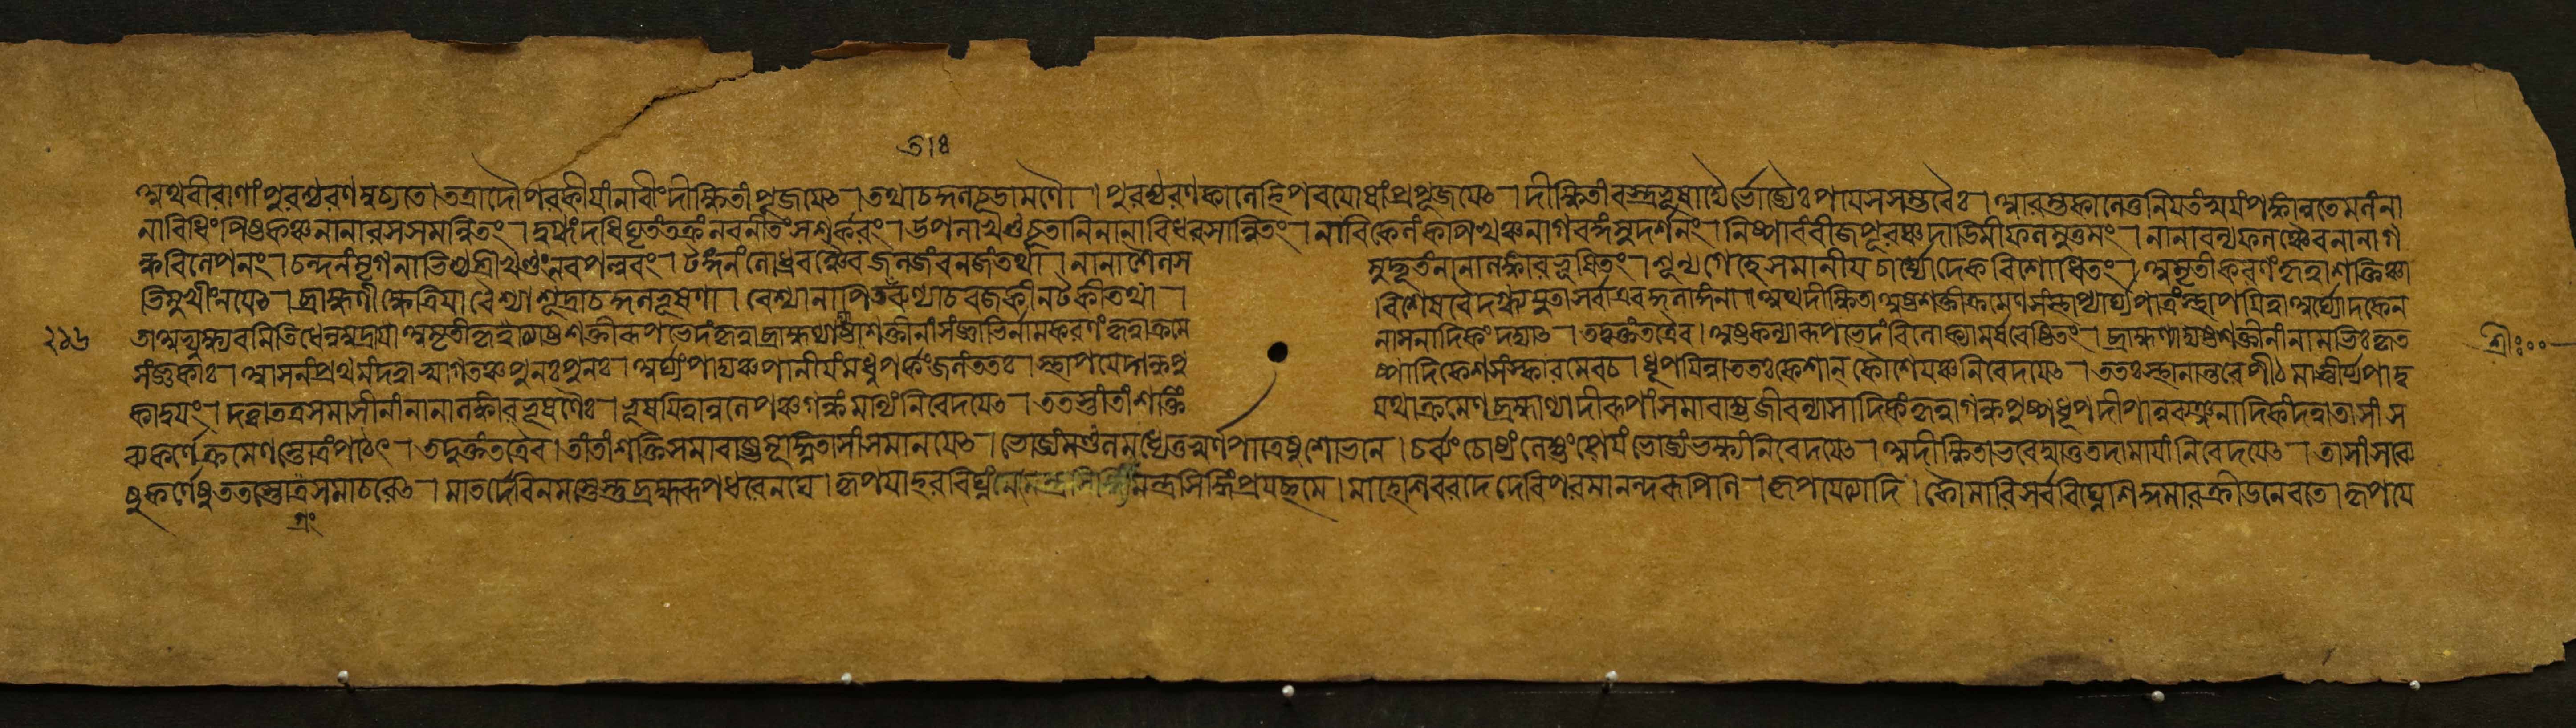 তাঃ
অথ বীরাণাং পুরশ্চরণমুচ্যতে। তত্রাদৌ পরকীয়াং নারীং দীক্ষিতাং পূজয়েৎ। তথাচ কুলচূড়ামণৌ। পুরশ্চরণকালে হি পরযোষাং প্রপূজয়েৎ। দীক্ষিতাং বস্ত্রভূষাদ্যৈর্ভোজ্যৈঃ পায়সসম্ভবৈঃ। আরম্ভকালে তু নিয়তং স্বয়ং পক্বান্নতেমনং না
নাবিধিং পিষ্টকঞ্চ নানারসসমন্বিতং। দুগ্ধং দধি ঘৃতং তক্রং নবনীতং সশর্করং। উপলাখণ্ডচূতানি নানাবিধরসান্বিতং। নারিকেলং কাপিত্থঞ্চ নাগরঙ্গং সুদর্শনং। নিষ্পাবং বীজপূরঞ্চ দাড়িমীফলমুত্তমং। নানাবন্যফলঞ্চৈব নানাগ
ন্ধবিলেপনং। চন্দনং মৃগনাভিঞ্চ শ্রীখণ্ডং নবপল্লবং। টঙ্গনং লোধ্রকঞ্চৈব জলজং বনজং তথা। নানাশৈলস মুদ্ভূতং নানালঙ্কারভূষিতং। শূন্যগেহে সমানীয় চার্ঘ্যোদকবিশোধিতং। অমৃতীকরণং কৃত্বা শক্তিঞ্চা
ভিমুখীং নয়েৎ। ব্রাহ্মণী ক্ষত্রিয়া বৈশ্যা শূদ্রা চ কুলভূষণা। বেশ্যা নাপিতকন্যা চ রজকী নটকী তথা। বিশেষবৈদগ্ধ্যযুতা সর্বা এব কুলাঙ্গনা। অথ দীক্ষিতা অষ্টশক্তীঃ ক্রমেণ সংস্থাপ্যার্ঘ্যপাত্রং স্থাপয়িত্বা অর্ঘ্যোদকেন
২১৬ তা অভ্যুক্ষ্য বমিতি ধেনুমুদ্রয়া অমৃতীকৃত্য অষ্টশক্তীরূপভেদং কৃত্বা ব্রাহ্মণ্যাদ্যষ্টাশক্তীনাং সংজ্ঞাভির্নামকরণং কৃত্বা ক্রমে নাসনাদিকং দদ্যাৎ। তদুক্তং তত্রৈব। অষ্টকন্যারূপভেদাং বিলোক্যামর্ষবেষ্টিতং। ব্রাহ্মণ্যাদ্যষ্টশক্তীনাং নামভিঃ কৃত শ্রীঃ
সংজ্ঞকাঃ। আসনং প্রথমং দত্বা স্বাগতঞ্চ পুনঃপুনঃ। অর্ঘ্যং পাদ্যঞ্চ পানীয়ং মধুপর্কং জলং ততঃ। স্নাপয়েদ্গন্ধপু ষ্পাদি কেশসংস্কারমেব চ। ধূপয়িত্বা ততঃ কেশান্ কৌশেয়ঞ্চ নিবেদয়েৎ। ততঃ স্থানান্তরে পীঠমাস্তীর্য্য পাদু
কাদ্বয়ং। দত্বা তত্র সমাসীনাং নানালঙ্কারভূষণৈঃ। ভূষয়িত্বানুলেপঞ্চ গন্ধং মাল্যং নিবেদয়েৎ। ততস্তাং তাং শক্তিং যথাক্রমেণ ব্রহ্মাণ্যাদীরূপাং সমাবাহ্য জীবন্যাসাদিকং কৃত্বা গন্ধপুষ্পধূপদীপান্নব্যঞ্জনাদিকং দত্বা তাসাং স
ব্যকর্ণে ক্রমেণ স্তোত্রং পঠেৎ। তদুক্তং তত্রৈব। তাং তাং শক্তিং সমাবাহ্য মূর্ধ্নি তাসাং সমানয়েৎ। ভোজ্যং মণ্ডলমধ্যে তু স্বর্ণপাত্রেষু শোভনে। চর্ব্যং চোষ্যং লেহ্যং পেয়ং ভোজ্যং ভক্ষ্যং নিবেদয়েৎ। অদীক্ষিতা ভবেদ্যা তু তদা মায়াং নিবেদয়েৎ। তাসাং সব্যে
ষু কর্ণেষু ততঃ স্তোত্রং সমাচরেৎ। মাতর্দেবি নমস্তেস্তু ব্রহ্মরূপধরেনঘে। কৃপয়া হর বিঘ্নং মে মন্ত্রসিদ্ধিং প্রযচ্ছ মে। মাহেশি বরদে দেবি পরমানন্দরূপিণি। কৃপয়েত্যাদি। কৌমারি সর্ববিঘ্নেশি কুমারক্রীড়নে বরে। কৃপয়ে